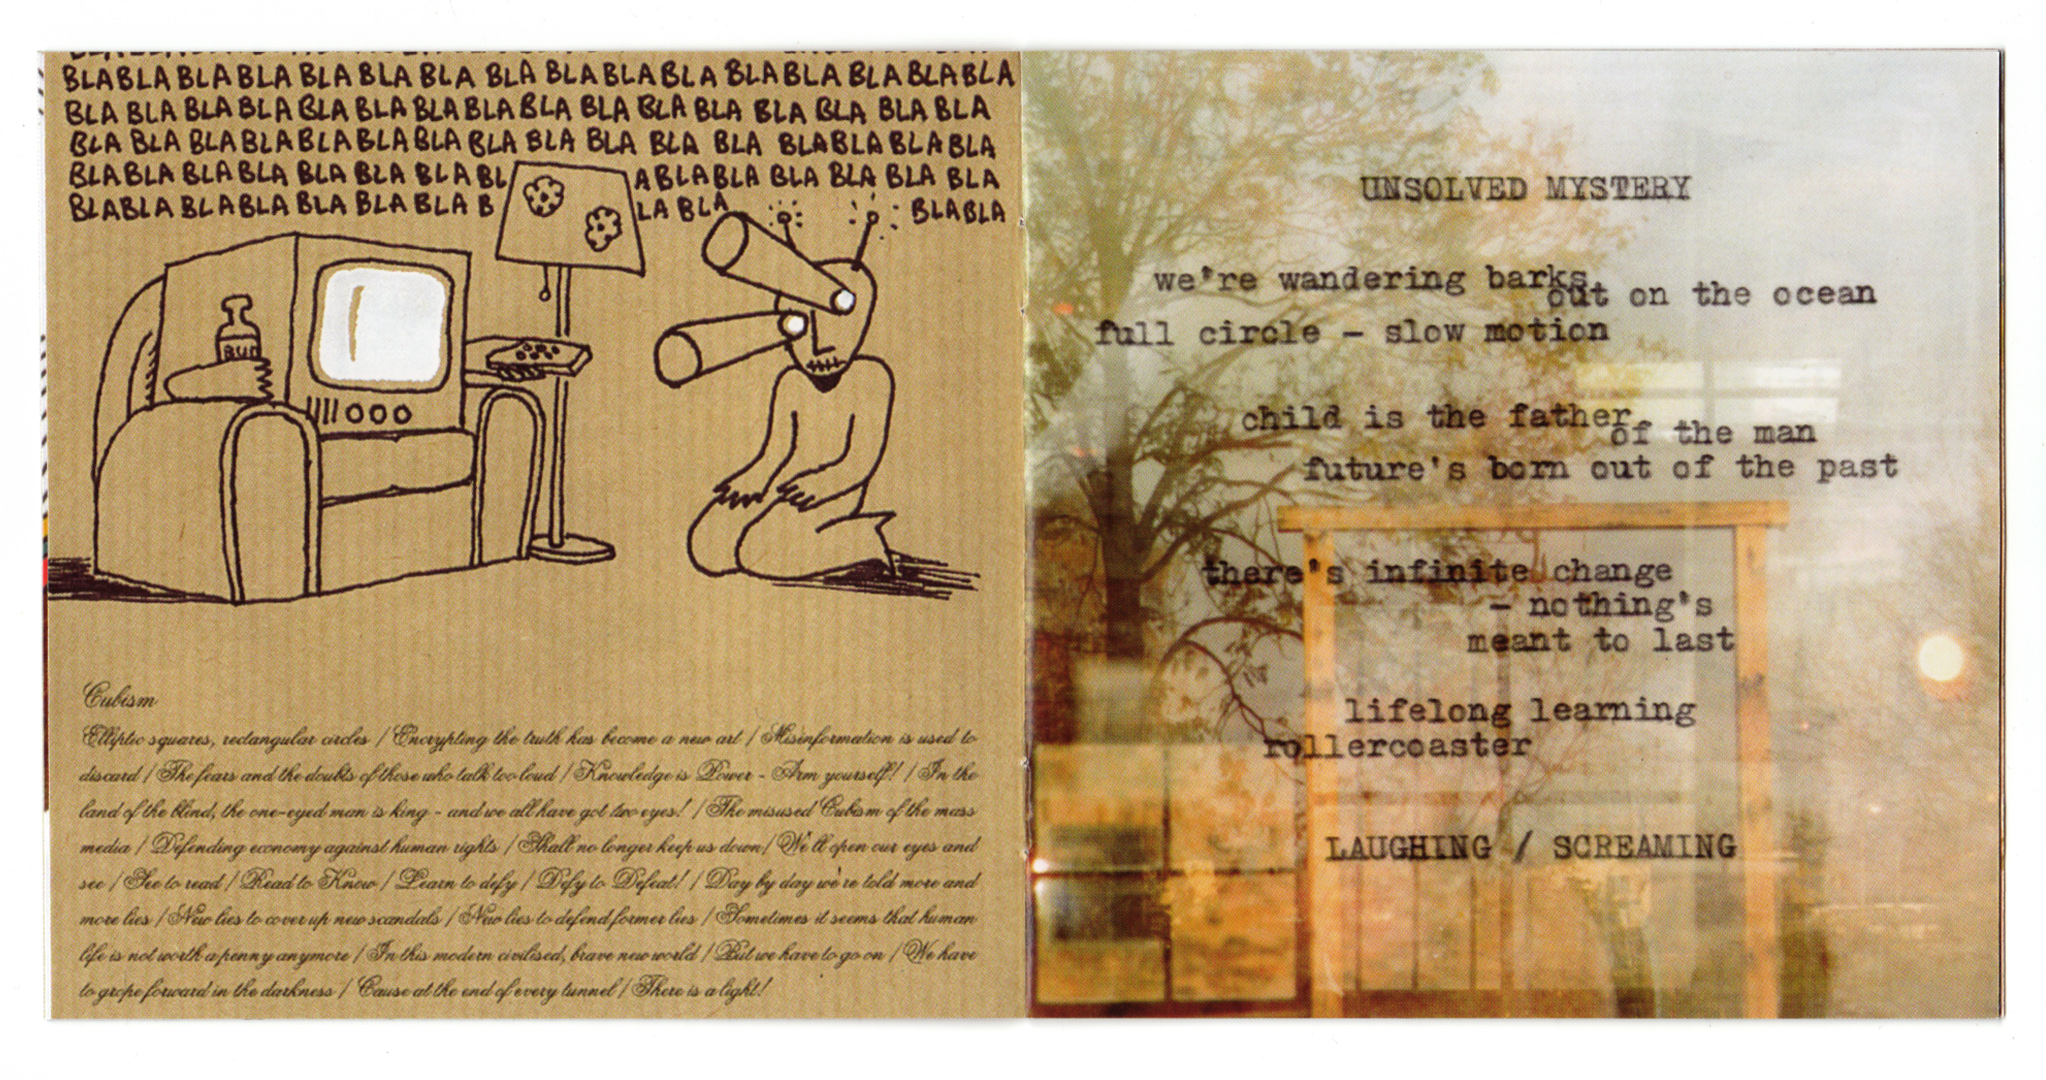 BLABLA BLABLA BLABLA BLA BLA BLABLABLA BLABLA BLABLABLA
BLA BLA BLABLA BLABLA BLABLABLA BLA BLA BLA BLA BLA BLA
BLA BLA BLABLABLABLABLA BLA BLA BLA BLA BLABLABLABLA
BLABLA BLABLA BLABLA BLABL ABLABLA BLA BLA BLA BLA
BLABLA BLABLA BLABLA BLA B LA BLA BLABLA
BUD
Cubism
Elliptic squares, rectangular circles / Encrypting the truth has become a new art / Misinformation is used to
discard / The fears and the doubts of those who talk too loud / Knowledge is Power - Arm yourself! / In the
land of the blind, the one-eyed man is king - and we all have got two eyes! / The misused Cubism of the mass
media / Defending economy against human rights / Shall no longer keep us down! / We'll open our eyes and
see / See to read / Read to Know / Learn to defy / Defy to Defeat! / Day by day we're told more and
more lies / New lies to cover up new scandals / New lies to defend former lies / Sometimes it seems that human
life is not worth a penny anymore / In this modern civilised, brave new world / But we have to go on / We have
to grope forward in the darkness / Cause at the end of every tunnel / There is a light!
UNSOLVED MYSTERY
we're wandering barks
out on the ocean
full circle - slow motion
child is the father
of the man
future's born out of the past
there's infinite change
- nothing's
meant to last
lifelong learning
rollercoaster
LAUGHING / SCREAMING